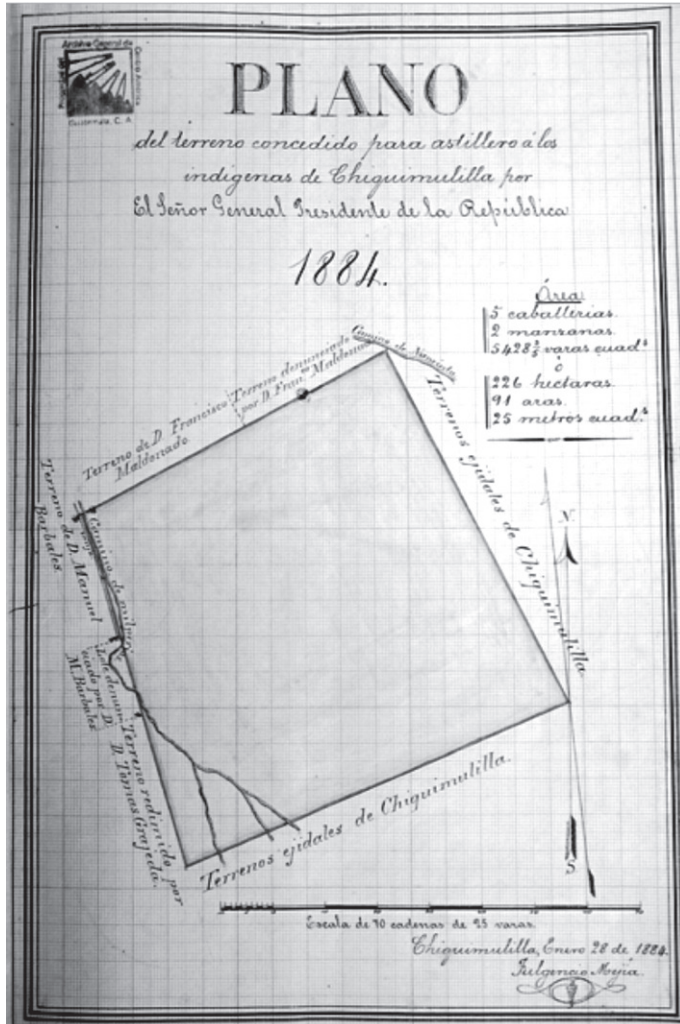 Archivo General de
Centro América
Guatemala, C. A.
PLANO
del terreno concedido para astillero á los
indigenas de Chiquimulilla por
El Señor General Presidente de la República
1884.
Área
5 caballerias.
2 manzanas.
5428 varas cuad.ˢ
ó
226 hectaras.
91 aras.
25 metros cuad.ˢ
Camino de
Terreno denunciado
por D. Fran.ᶜᵒ Maldonado
Terreno de D. Francisco
Maldonado
Terrenos ejidales de Chiquimulilla.
Terreno de D. Manuel
Barbales.
Camino de
Lote denun-
ciado por D.
M. Barbales
Terreno redimido por
D. Tomas Grajeda.
Terrenos ejidales de Chiquimulilla.
N.
S.
Escala de 10 cadenas de 25 varas.
Chiquimulilla, Enero 28 de 1884.
Fulgencio Mejía.